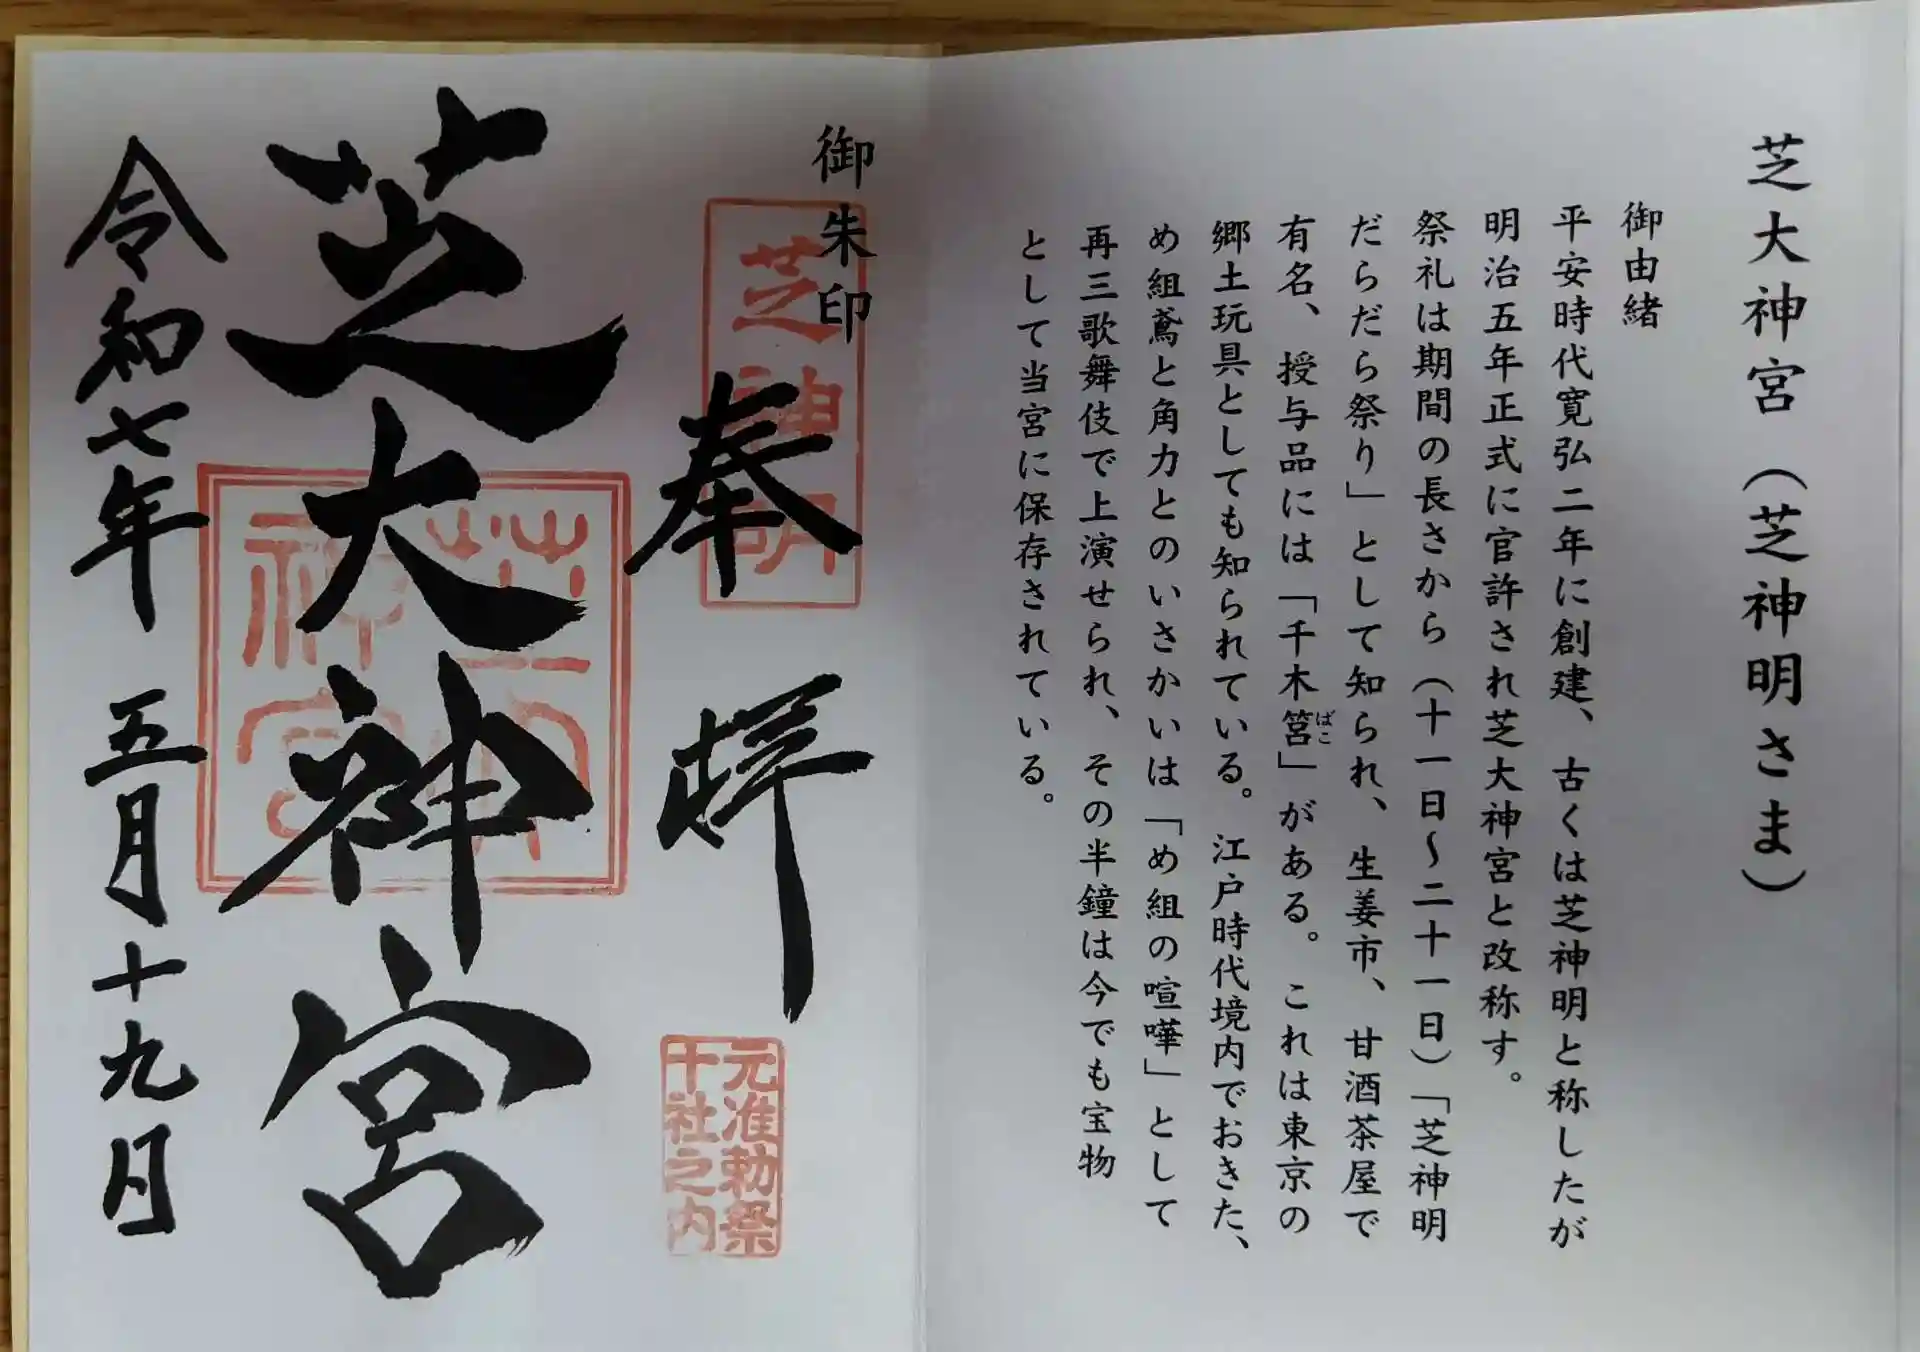 芝大神宮（芝神明さま）
御由緒
平安時代寛弘二年に創建、古くは芝神明と称したが
明治五年正式に官許され芝大神宮と改称す。
祭礼は期間の長さから（十一日〜二十一日）「芝神明
だらだら祭り」として知られ、生姜市、甘酒茶屋で
有名、授与品には「千木筥」がある。これは東京の
ばこ
郷土玩具としても知られている。江戸時代境内でおきた、
め組鳶と角力とのいさかいは「め組の喧嘩」として
再三歌舞伎で上演せられ、その半鐘は今でも宝物
として当宮に保存されている。
御朱印
芝神明
奉拝
元准勅祭
十社之内
芝大神宮
芝大
神宮
令和七年 五月十九日